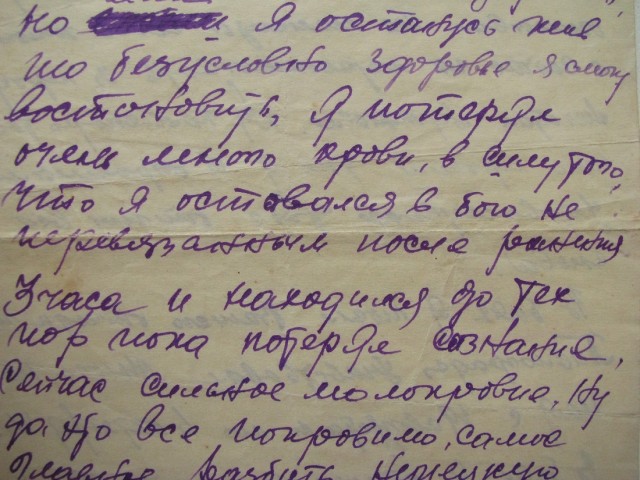 но если я останусь жив
то безусловно здоровье я смогу
востоновить, я потерял
очень много крови, в силу того,
что я оставался в бою не
перевязанным после ранения
3 часа и находился до тех
пор пока потерял сознание,
Сейчас сильное малокровие, Ну
да это все поправимо, самое
Главное разбить немецкую